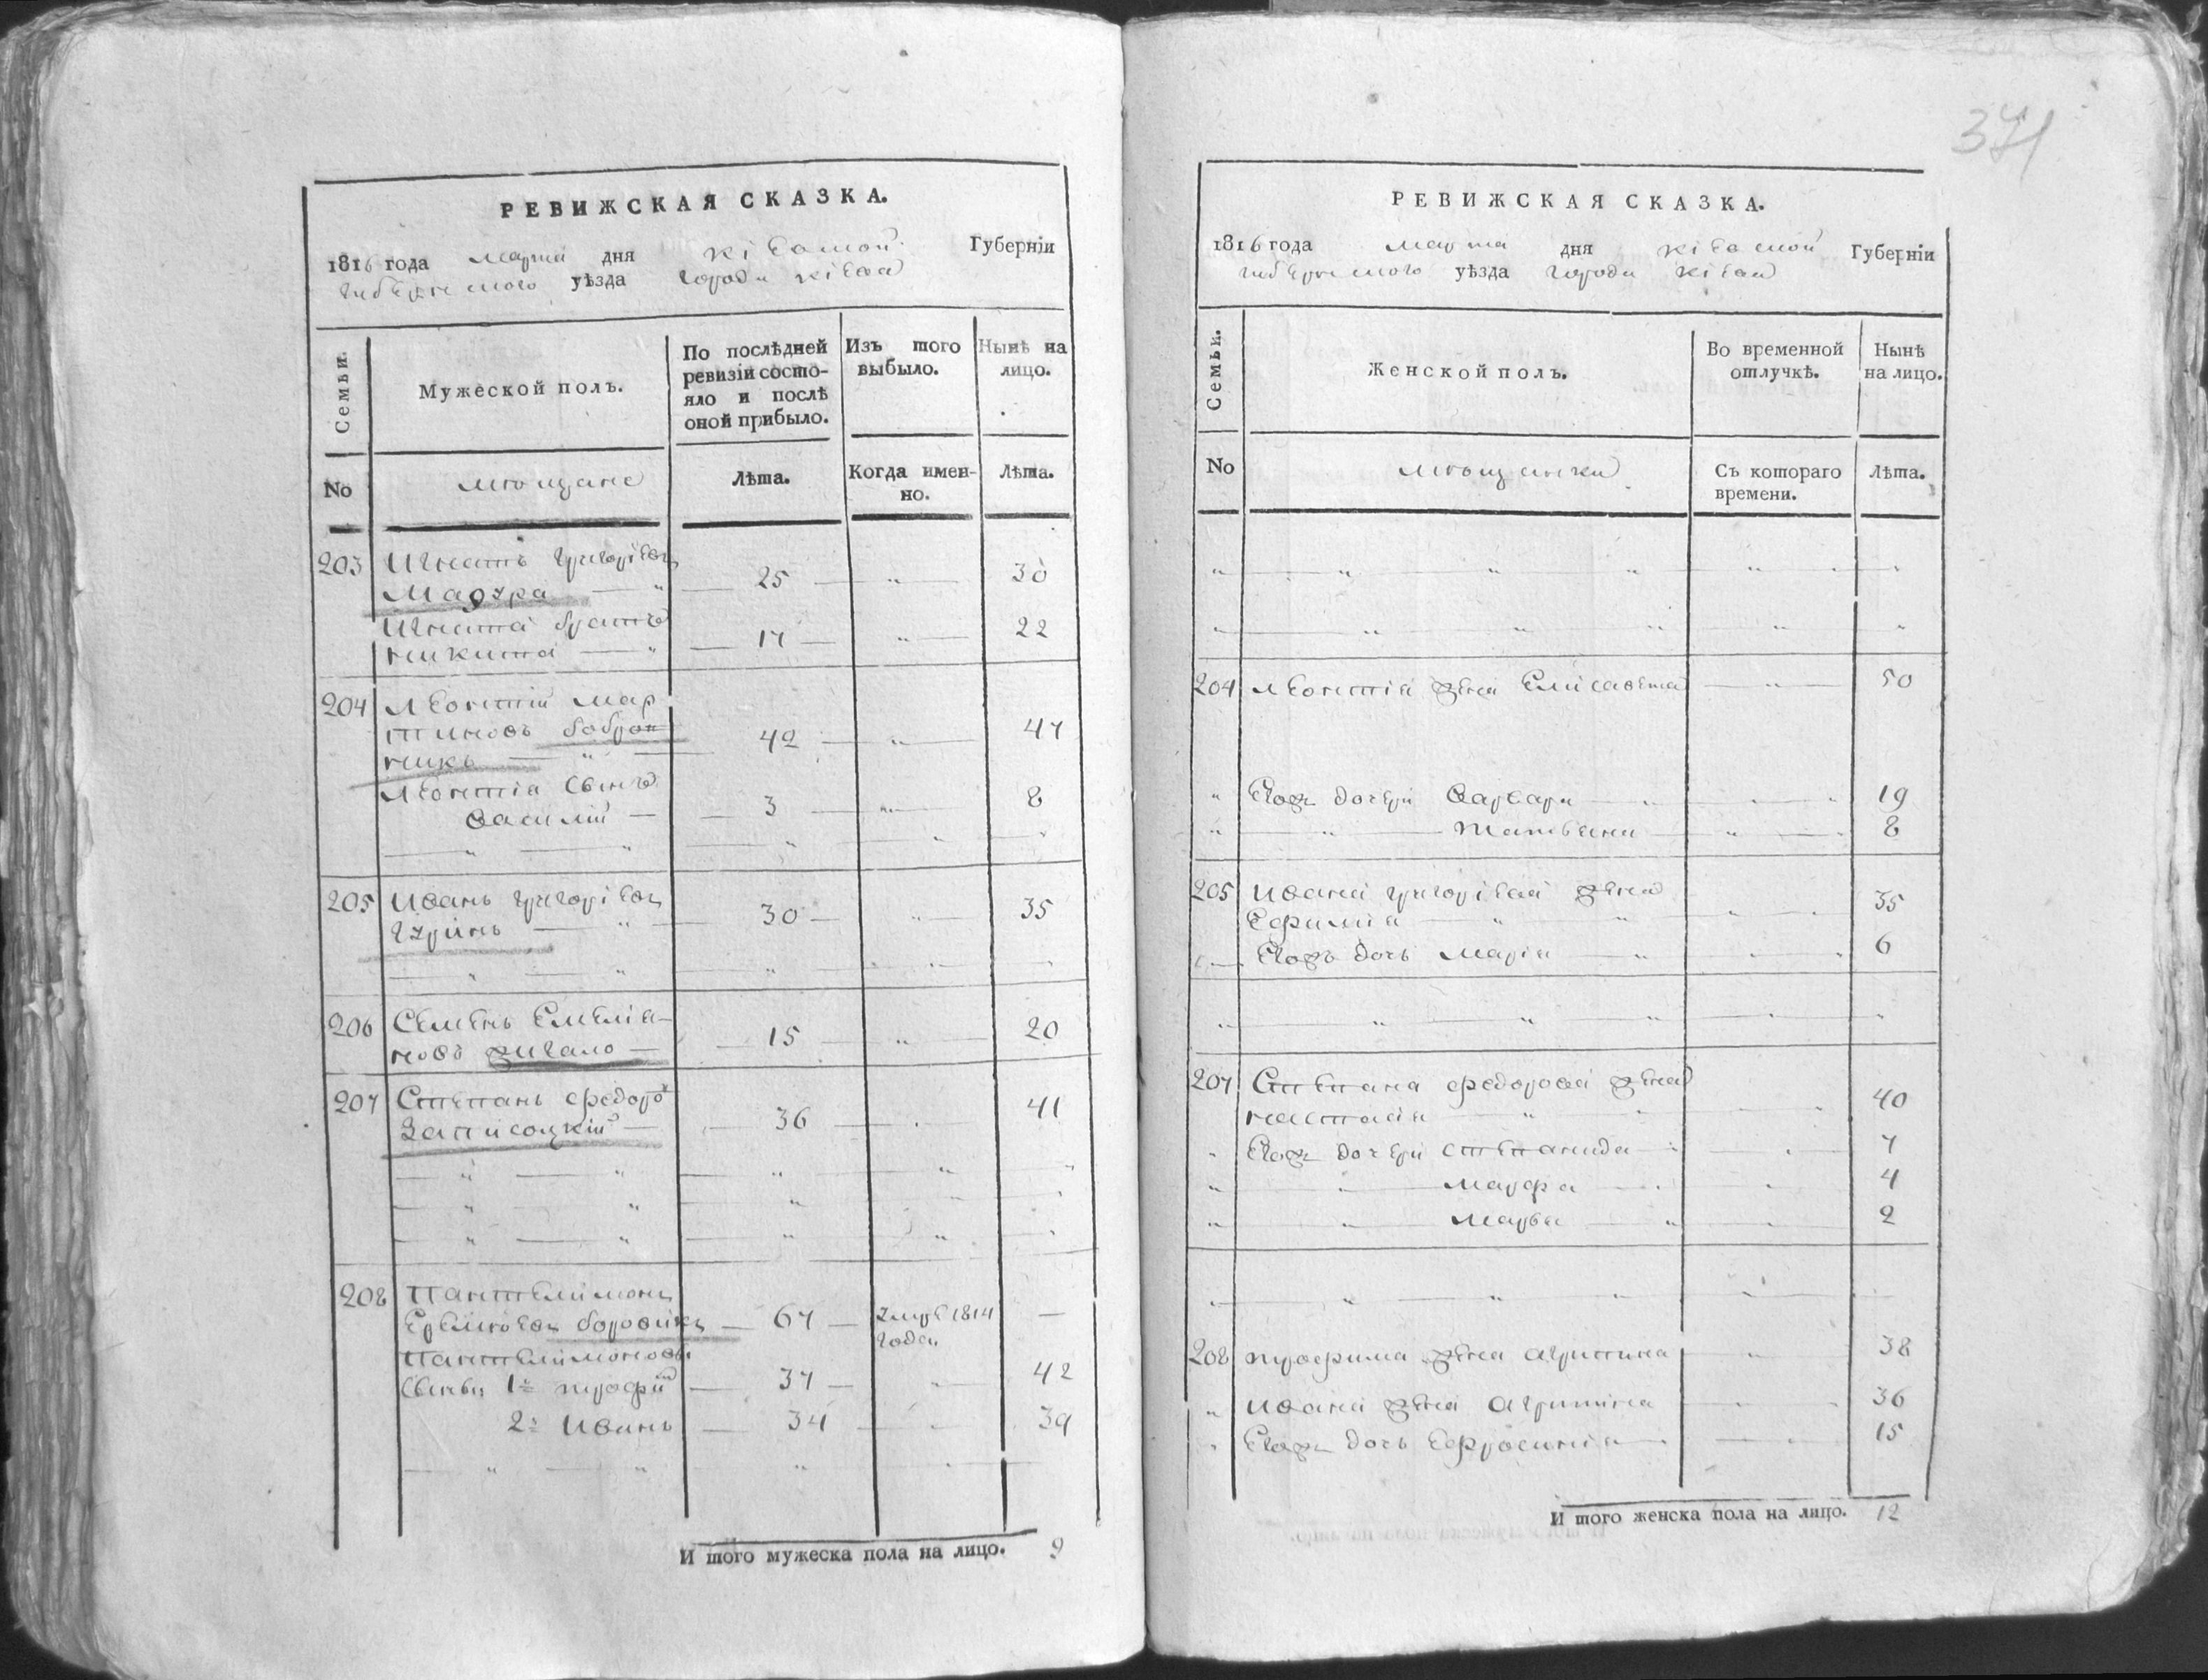 РЕВИЖСКАЯ СКАЗКА.
1816 года марта дня Кіевской Губерніи
губернского уѣзда города Кіева
Семьи.
Мужеской полъ.
По послѣдней
ревизіи состо-
яло и послѣ
оной прибыло.
Изъ того
выбыло.
Нынѣ на
лицо.
No
мещане
Лѣта.
Когда имен-
но.
Лѣта.
203 Игнатъ Григоріевъ
Мадзра 25 30
Игната братъ
Никита 17 22
204 Леонтій Мар
тиновъ Бобров
никъ 42 47
Леонтія сынъ
Василій 3 8
205 Иванъ Григоріевъ
30 35
206 Семенъ Емеліа-
новъ Жигало 15 20
207 Степанъ Федоров
Записоцкій 36 41
208 Пантелимонъ
Еремѣевъ Боровикъ 67 умре 1814 —
года
Пантелимоновы
сыны 1й Трофим 37 42
2й Иванъ 34 39
И того мужеска пола на лицо. 9
371
РЕВИЖСКАЯ СКАЗКА.
1816 года марта дня Кіевской Губерніи
губернского уѣзда города Кіева
Семьи.
Женской полъ.
Во временной
отлучкѣ.
Нынѣ
на лицо.
No
мещанки
Съ котораго
времени.
Лѣта.
204 Леонтія жена Елисавета 50
Егожъ дочери Варвара 19
Татьяна 8
205 Ивана Григоріева жена
Ефимія 35
Егожъ дочь Марія 6
207 Степана Федорова жена
Настасія 40
Егожъ дочери Степанида 7
Марфа 4
Марья 2
208 Трофима жена Агрипина 38
Ивана жена Агрипина 36
Егожъ дочь Ефросинія 15
И того женска пола на лицо. 12